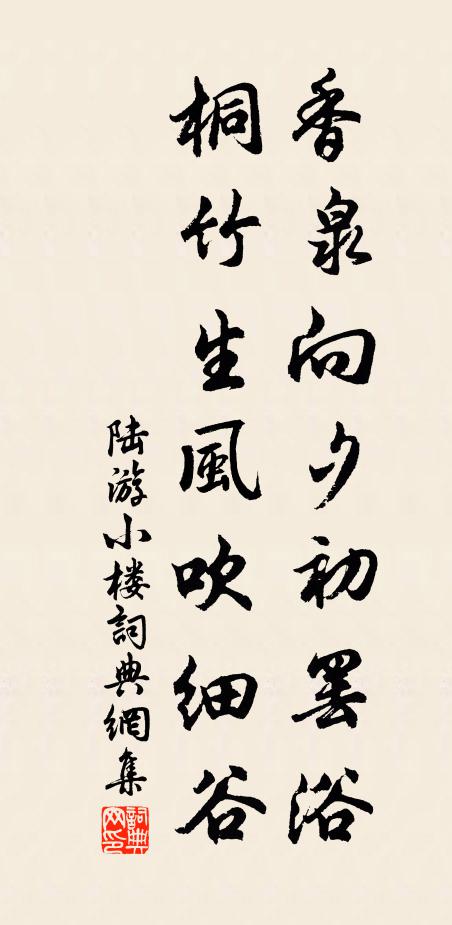 香泉向夕初罢浴
桐竹生風吹细谷
陆游小楼詞典網集
詞典網印